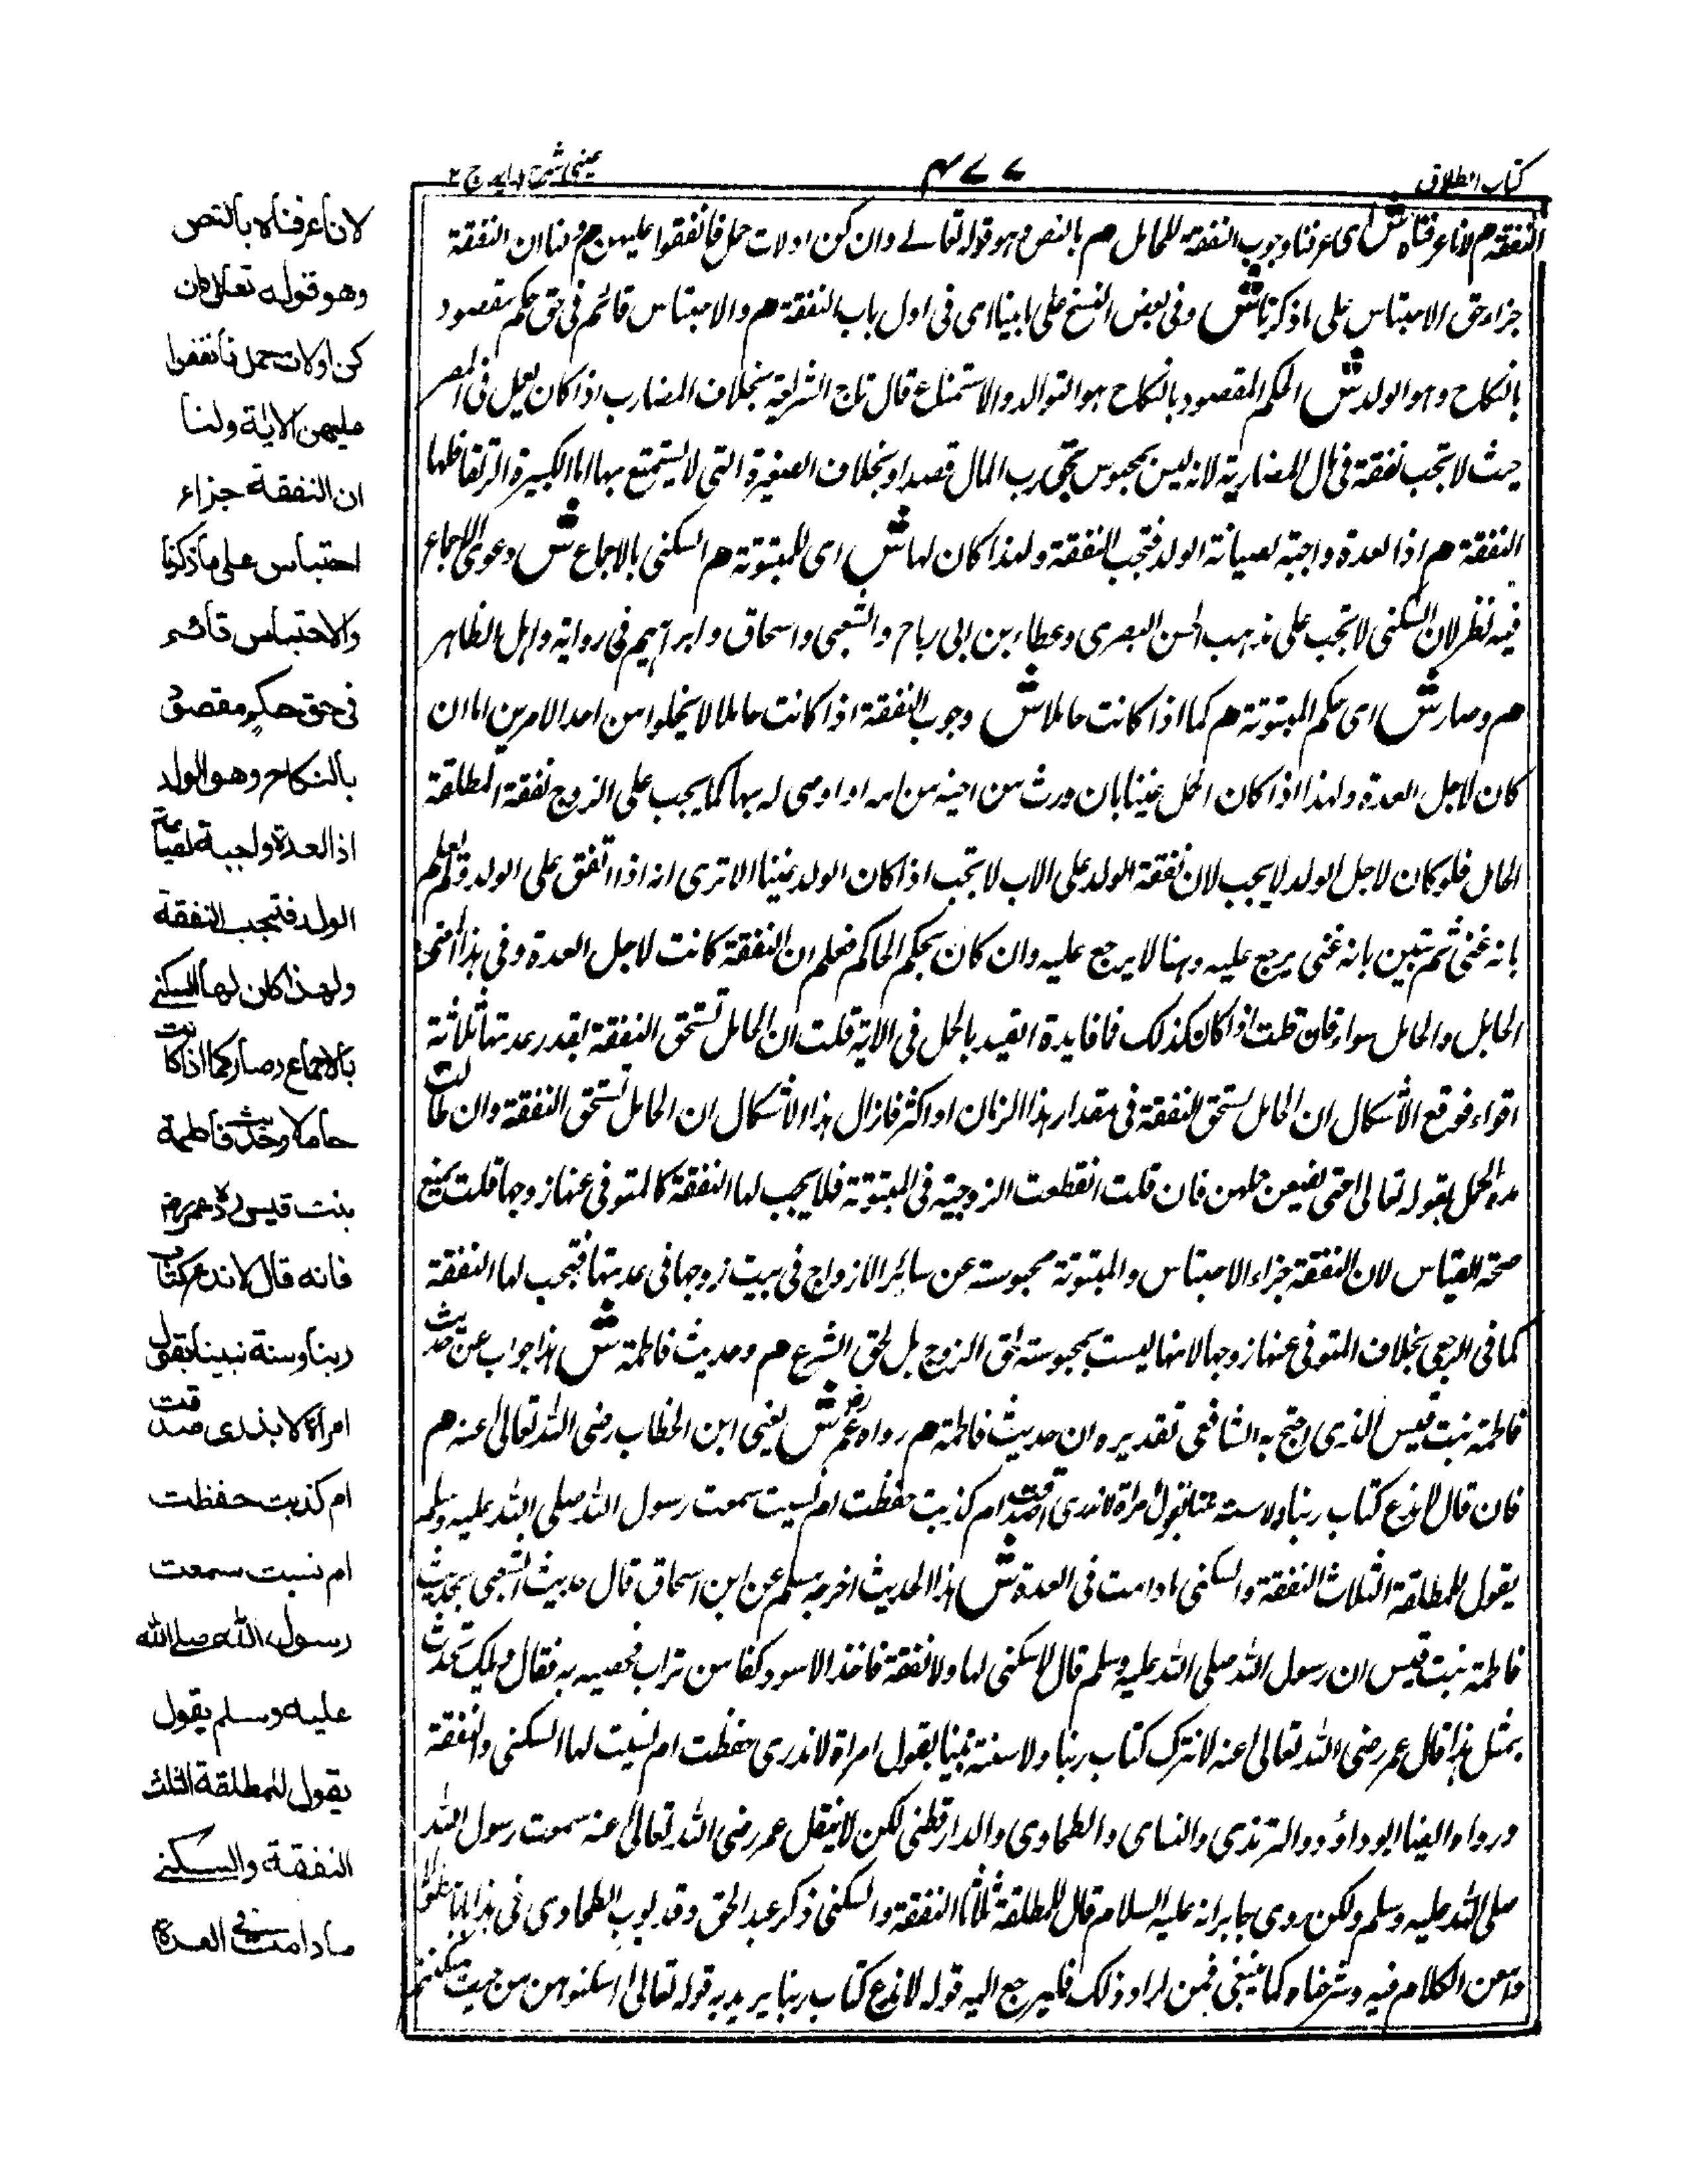 كتاب الطلاق
٤٧٧
عينى شرح هدايه ج ٢
النفقة م لانا عرفناه ش اى عرفنا وجوب النفقة للحامل هم بالنص وهو قوله تعالے وان كن اولات حمل فانفقوا عليهن م ولنا ان النفقة
جزاء حق الاحتباس على ما ذكرنا ش وفى بعض النسخ على ما بينا اى فى اول باب النفقة هم والاحتباس قائم فى حق حكم مقصود
بالنكاح وهو الولد ش الحكم المقصود بالنكاح هو التوالد والاستمتاع قال تاج الشريعة بخلاف المضارب اذا كان يعمل فى المصر
حيث لا تجب نفقة فى مال المضاربة لانه ليس بمحبوس بحق رب المال قصدا وبخلاف الصغيرة التى لا يستمتع بها اما الكبيرة الرتقاء فلها
النفقة هم اذا العدة واجبة لصيانة الولد فتجب النفقة ولهذا كان لها ش اى للمبتوتة هم السكنى بالاجماع ش دعوى الاجماع
فيه نظر لان السكنى لا تجب على مذهب الحسن البصرى وعطاء بن ابى رباح والشعبى واسحاق وابراهيم فى رواية واهل الظاهر
هم وصار ش اى حكم المبتوتة هم كما اذا كانت حاملا ش وجوب النفقة اذا كانت حاملا لا يخلوا من احد الامرين اما ان
كان لاجل العدة ولهذا اذا كان الحمل غنيا بان ورث من اخيه من امه او اوصى له بها كما يجب على الزوج نفقة المطلقة
الحامل فلو كان لاجل الولد لا يجب لان نفقة الولد على الاب لا تجب اذا كان الولد غنيا الا ترى انه اذا انفق على الولد ولم يعلم
بانه غنى ثم تبين بانه غنى يرجع عليه وهنا لا يرجع عليه وان كان بحكم الحاكم فعلم ان النفقة كانت لاجل العدة وفى هذا المعنى
الحايل والحامل سواء فان قلت اذا كان كذلك فما فايدة القيد بالحمل فى الاية قلت ان الحايل تستحق النفقة بقدر عدتها ثلاثة
اقراء فوقع الاشكال ان الحامل تستحق النفقة فى مقدار هذا الزمان او اكثر فازال هذا الاشكال ان الحامل تستحق النفقة وان طالت
مدة الحمل بقوله تعالى حتى يضعن حملهن فان قلت انقطعت الزوجية فى المبتوتة فلا يجب لها النفقة كالمتوفى عنها زوجها قلت يمنع
صحة القياس لان النفقة جزاء الاحتباس والمبتوتة محبوسته عن سائر الازواج فى بيت زوجها فى عدتها فتجب لها النفقة
كما فى الرجعى بخلاف المتوفى عنها زوجها لانها ليست بمحبوسته لحق الزوج بل لحق الشرع هم وحديث فاطمة ش هذا جواب عن حديث
فاطمة بنت قيس الذى احتج به الشافعى تقديره ان حديث فاطمة هم رواه عمر رض ش يعنى ابن الخطاب رضى الله تعالى عنه هم
فان قال لا ندع كتاب ربنا ولا سنة نبينا بقول امراة لا ندرى اصدقت ام كذبت حفظت ام نسيت سمعت رسول الله صلى الله عليه وسلم
يقول للمطلقة الثلاث النفقة والسكنى ما دامت فى العدة ش هذا الحديث اخرجه مسلم عن ابن اسحاق قال حديث الشعبى بحديث
فاطمة بنت قيس ان رسول الله صلى الله عليه وسلم قال لا سكنى لها ولا نفقة فاخذ الاسود كفا من تراب فحصبه به فقال ويلك تحدث
بمثل هذا قال عمر رضى الله تعالى عنه لا نترك كتاب ربنا ولا سنة نبينا بقول امراة لا ندرى حفظت ام نسيت لها السكنى والنفقة
ورواه ايضا ابو داؤد والترمذى والنساى والطحاوى والدارقطنى لكن لا ينقل عمر رضى الله تعالى عنه سمعت رسول الله
صلى الله عليه وسلم ولكن روى جابر انه عليه السلام قال للمطلقة ثلاثا النفقة والسكنى ذكر عبد الحق وقد بوب الطحاوى فى هذا بابا
وامعن الكلام فيه وشرحناه كما ينبغى فمن اراد ذلك فليرجع اليه قوله لا ندع كتاب ربنا يريد به قوله تعالى اسكنوهن من حيث سكنتم
لانا عرفناه بالنص
وهو قوله تعالى وان
كن اولات حمل فانفقوا
عليهن الاية ولنا
ان النفقة جزاء
احتباس على ما ذكرنا
والاحتباس قائم
فى حق حكم مقصود
بالنكاح وهو الولد
اذ العدة واجبة لصيانة
الولد فتجب النفقة
ولهذا كان لها السكنى
بالاجماع وصار كما اذا كانت
حاملا وحديث فاطمة
بنت قيس رده عمر رض
فانه قال لا ندع كتاب
ربنا وسنة نبينا بقول
امراة لا ندرى صدقت
ام كذبت حفظت
ام نسيت سمعت
رسول الله صلى الله
عليه وسلم يقول
للمطلقة الثلث
النفقة والسكنى
ما دامت فى العدة